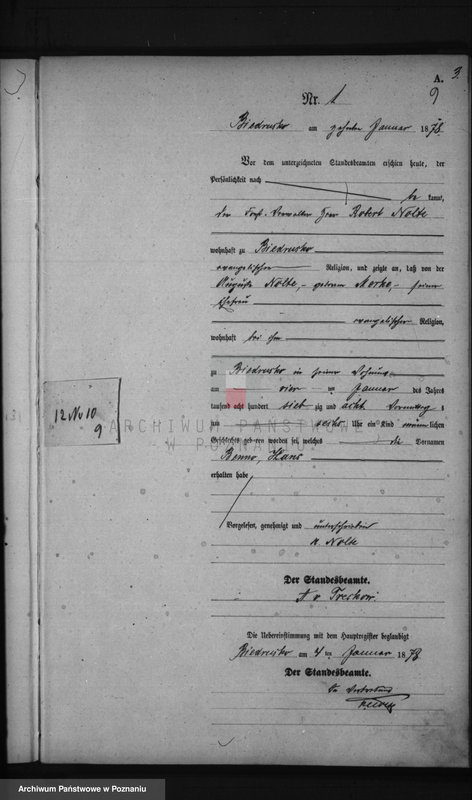 A.
Nr. 1
9
Biedrusko am zehnten Januar 1878.
Vor dem unterzeichneten Standesbeamten erschien heute, der
Persönlichkeit nach
be kannt,
der Forst-Verwalter Herr Robert Nolte
wohnhaft zu Biedrusko
evangelischer Religion, und zeigte an, daß von der
Auguste Nolte, geborene seiner
Ehefrau
evangelischer Religion,
wohnhaft bei ihm
zu Biedrusko in seiner Wohnung
am vier ten Januar des Jahres
tausend acht hundert sieb zig und acht Vormittag s
um sechs Uhr ein Kind männlichen
Geschlechts geboren worden sei, welches die Vornamen
Benno, Hans
erhalten habe
12 No 10
9
ARCHIWUM PAŃSTWOWE
W POZNANIU
Vorgelesen, genehmigt und unterschrieben
R. Nolte
Der Standesbeamte.
v Treskow.
Die Uebereinstimmung mit dem Hauptregister beglaubigt
Biedrusko am ten Januar 1878
Der Standesbeamte.
In Vertretung
Archiwum Państwowe w Poznaniu